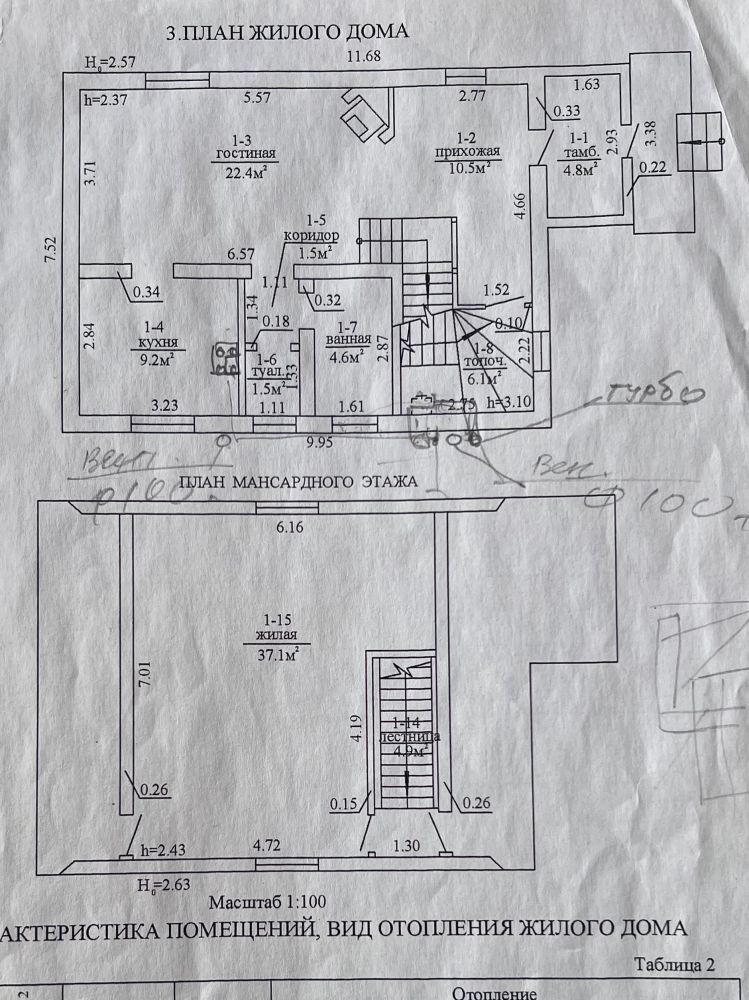 3.ПЛАН ЖИЛОГО ДОМА
H₀=2.57
11.68
h=2.37
5.57
2.77
1.63
0.33
1-3
гостиная
22.4м²
1-2
прихожая
10.5м²
1-1
тамб.
4.8м²
2.93
3.38
0.22
3.71
4.66
7.52
1-5
коридор
1.5м²
6.57
1.11
0.34
1.34
0.32
0.18
1.52
0.10
2.84
1-4
кухня
9.2м²
1-7
ванная
4.6м²
2.87
1-6
туал.
1.5м²
1.33
1-8
топоч.
6.1м²
2.22
3.23
1.11
1.61
2.75
h=3.10
турбо
9.95
Вен.
ф100
ПЛАН МАНСАРДНОГО ЭТАЖА
6.16
1-15
жилая
37.1м²
7.01
4.19
1-14
лестница
4.9м²
0.26
0.15
0.26
h=2.43
4.72
1.30
H₀=2.63
Масштаб 1:100
АКТЕРИСТИКА ПОМЕЩЕНИЙ, ВИД ОТОПЛЕНИЯ ЖИЛОГО ДОМА
Таблица 2
Отопление